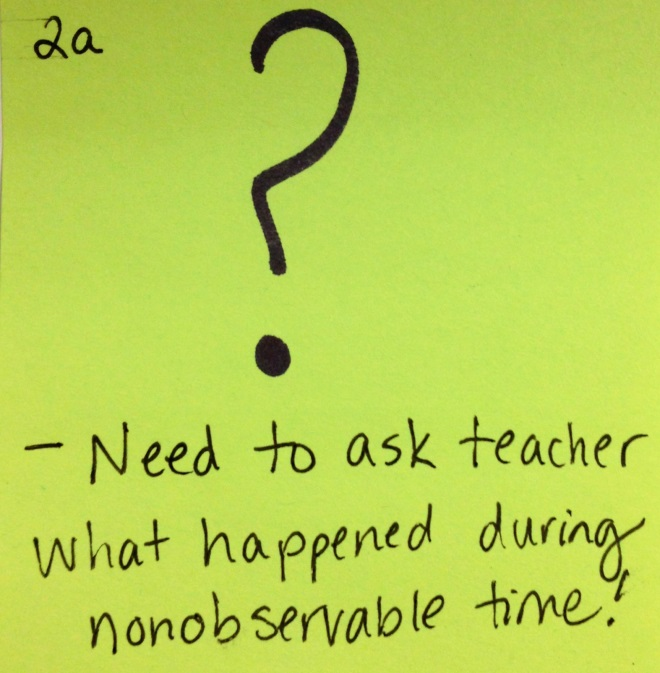 2a
?
- Need to ask teacher
what happened during
nonobservable time!